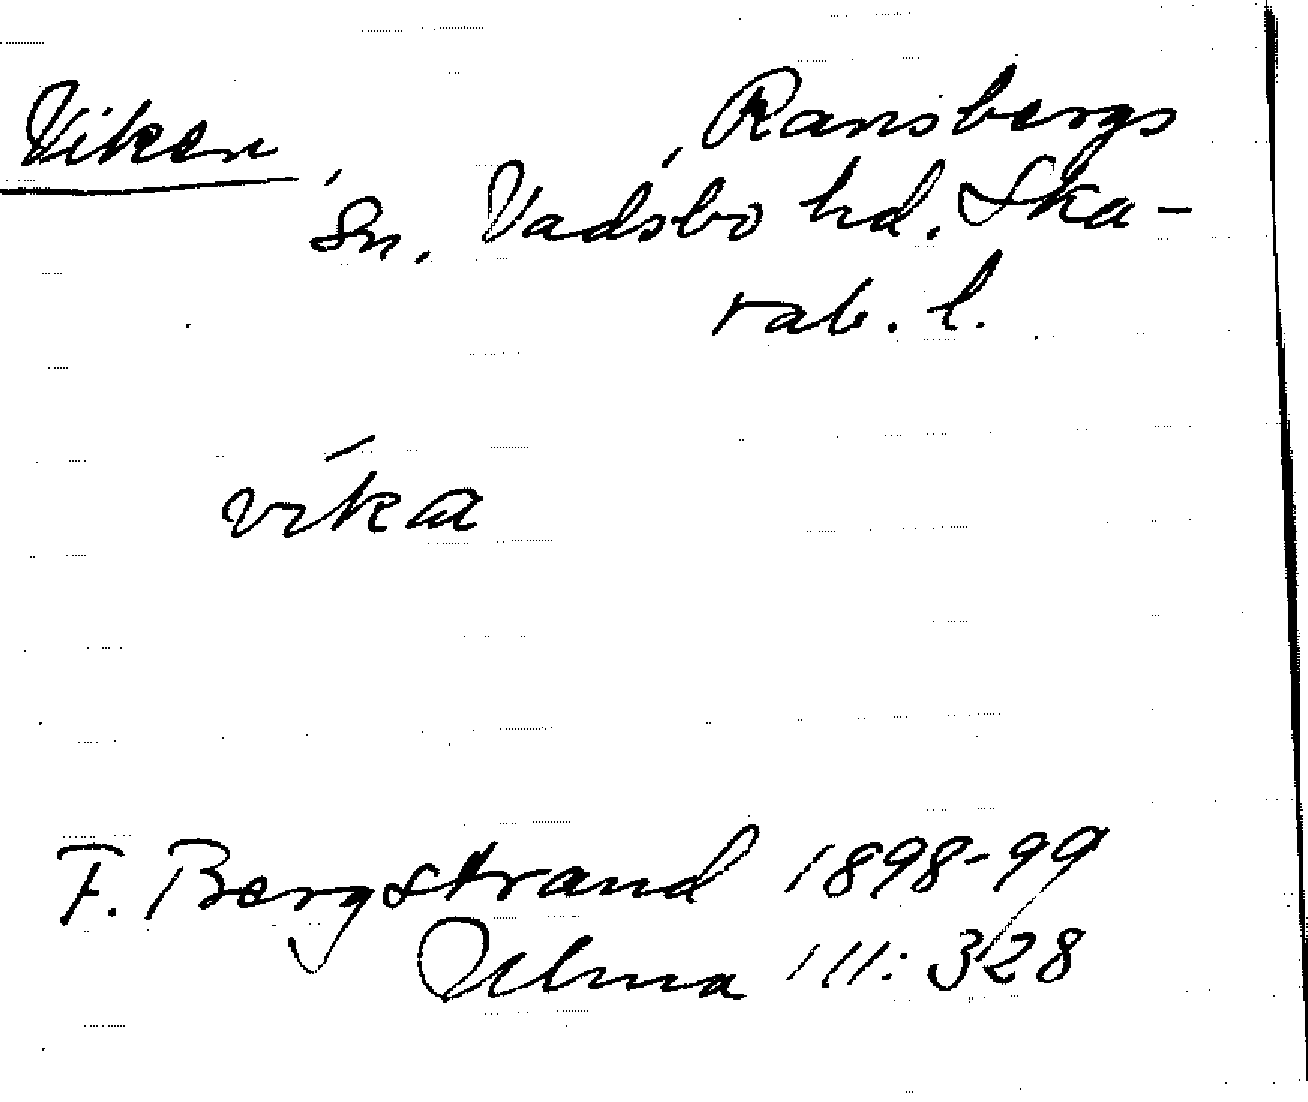 Viken, Ransbergs
Sn. Vadsbo hd. Ska-
rab. l.
víka
F. Bergstrand 1898-99
Ulma 111: 328